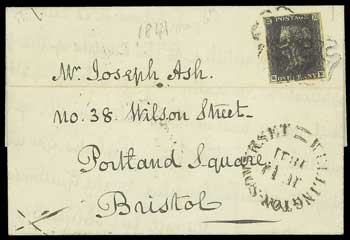 1841
POSTAGE
ONE PENNY
Mr. Joseph Ash.
no. 38. Wilson Street
Portland Square
Bristol
WELLINGTON SOMERSET
1841